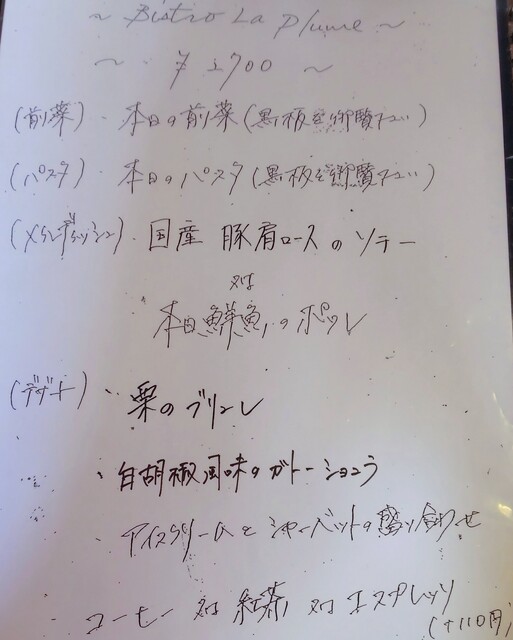 ~ Bistro La Plume ~
~ ¥2700 ~
(前菜)・本日の前菜(黒板を御覧下さい)
(パスタ)・本日のパスタ(黒板を御覧下さい)
(メインディッシュ)・国産 豚肩ロースのソテー
又は
本日鮮魚のポワレ
(デザート)・栗のブリュレ
・白胡椒風味のガトーショコラ
・アイスクリームとシャーベットの盛り合わせ
コーヒー 又は 紅茶 又は エスプレッソ
(+110円)